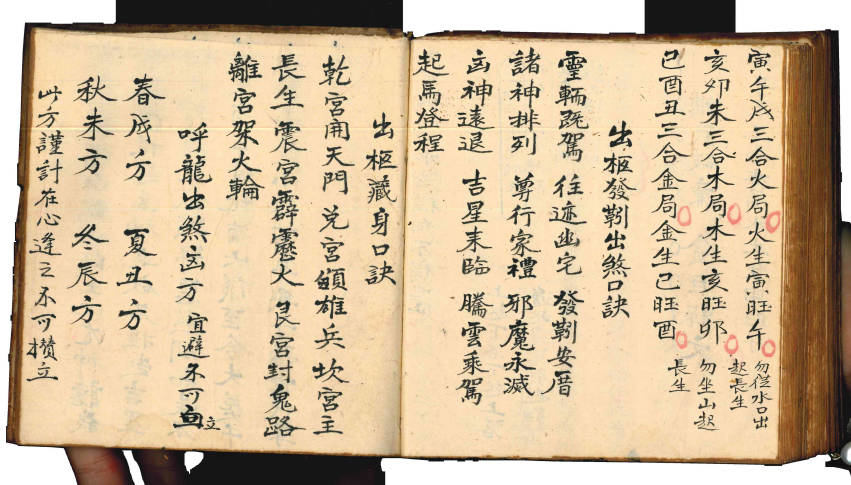 寅午戌三合火局火生寅旺午 勿從水口出
起長生
亥卯未三合木局木生亥旺卯 勿坐山起
長生
巳酉丑三合金局金生巳旺酉
出柩發靷出煞口訣
靈輀既駕 往迹幽宅 發靷安厝
諸神排列 尊行家禮 邪魔永滅
凶神遠退 吉星來臨 騰雲乘駕
起馬登程
出柩藏身口訣
乾宮開天門 兌宮領雄兵 坎宮主
長生 震宮霹靂火 艮宮封鬼路
離宮架火輪
呼龍出煞凶方 宜避不可向立
春戌方 夏丑方
秋未方 冬辰方
此方謹計在心逢之不可攢立